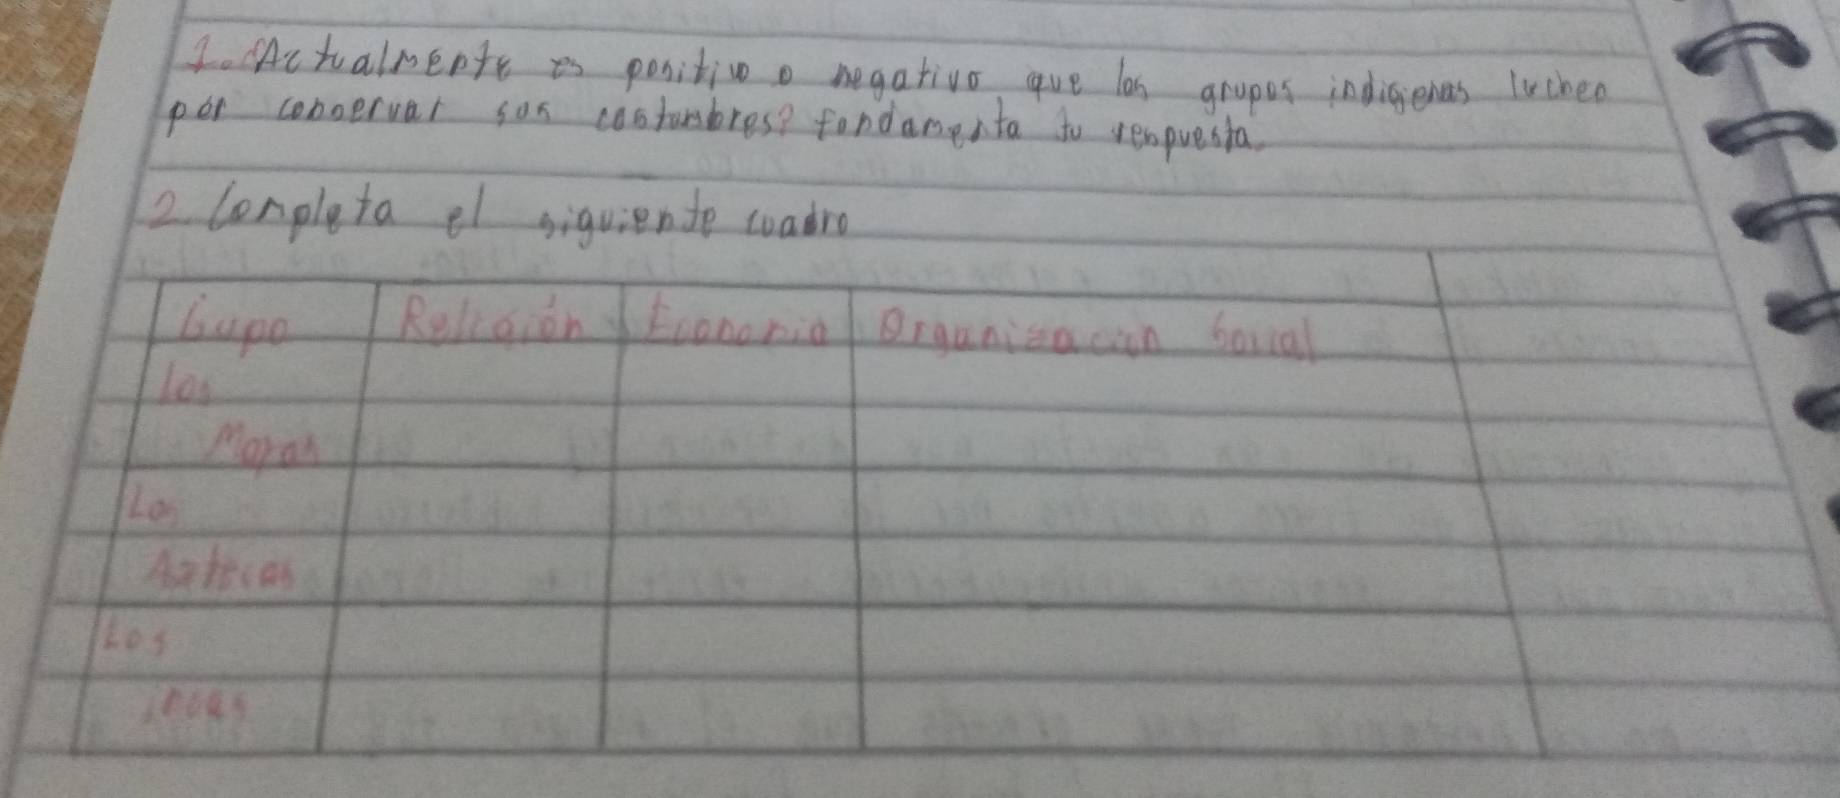 1. Actualmente es positivo o negativo que los grupos indigenas luchen
por conservar sus costumbres? fundamenta tu respuesta.
2 Completa el siguiente cuadro
Gupo Religión Economia Organización Social
los
Mayas
Los
Aztecas
Los
incas